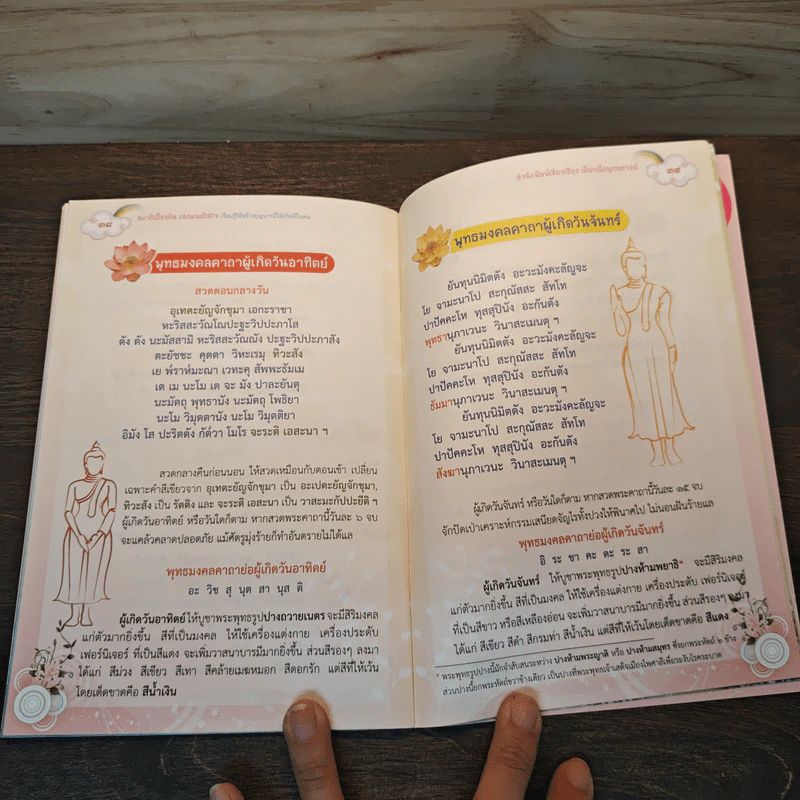 ๓๘
พุทธมงคลคาถาผู้เกิดวันอาทิตย์
สวดตอนกลางวัน
อุเทตะยัญจักขุมา เอกะราชา
หะริสสะวัณโณปะฐะวิปปะภาโส
ตัง ตัง นะมัสสามิ หะริสสะวัณณัง ปะฐะวิปปะภาสัง
ตะยัชชะ คุตตา วิหะเรมุ ทิวะสัง
เย พ๎ราห๎มะณา เวทะคุ สัพพะธัมเม
เต เม นะโม เต จะ มัง ปาละยันตุ
นะมัตถุ พุทธานัง นะมัตถุ โพธิยา
นะโม วิมุตตานัง นะโม วิมุตติยา
อิมัง โส ปะริตตัง กัต๎วา โมโร จะระติ เอสะนา ฯ
สวดกลางคืนก่อนนอน ให้สวดเหมือนกับตอนเช้า เปลี่ยน
เฉพาะคำสีเขียวจาก อุเทตะยัญจักขุมา เป็น อะเปตะยัญจักขุมา,
ทิวะสัง เป็น รัตติง และ จะระติ เอสะนา เป็น วาสะมะกัปปะยีติ ฯ
ผู้เกิดวันอาทิตย์ หรือวันใดก็ตาม หากสวดพระคาถานี้วันละ ๖ จบ
จะแคล้วคลาดปลอดภัย แม้ศัตรูมุ่งร้ายก็ทำอันตรายไม่ได้แล
พุทธมงคลคาถาย่อผู้เกิดวันอาทิตย์
อะ วิช สุ นุต สา นุส ติ
ผู้เกิดวันอาทิตย์ ให้บูชาพระพุทธรูปปางถวายเนตร จะมีสิริมงคล
แก่ตัวมากยิ่งขึ้น สีที่เป็นมงคล ให้ใช้เครื่องแต่งกาย เครื่องประดับ
เฟอร์นิเจอร์ ที่เป็นสีแดง จะเพิ่มวาสนาบารมีมากยิ่งขึ้น ส่วนสีรองๆ ลงมา
ได้แก่ สีม่วง สีเขียว สีเทา สีคล้ายเมฆหมอก สีดอกรัก แต่สีที่ให้เว้น
โดยเด็ดขาดคือ สีน้ำเงิน
๓๙
พุทธมงคลคาถาผู้เกิดวันจันทร์
ยันทุนนิมิตตัง อะวะมังคะลัญจะ
โย จามะนาโป สะกุณัสสะ สัทโท
ปาปัคคะโห ทุสสุปินัง อะกันตัง
พุทธานุภาเวนะ วินาสะเมนตุ ฯ
ยันทุนนิมิตตัง อะวะมังคะลัญจะ
โย จามะนาโป สะกุณัสสะ สัทโท
ปาปัคคะโห ทุสสุปินัง อะกันตัง
ธัมมานุภาเวนะ วินาสะเมนตุ ฯ
ยันทุนนิมิตตัง อะวะมังคะลัญจะ
โย จามะนาโป สะกุณัสสะ สัทโท
ปาปัคคะโห ทุสสุปินัง อะกันตัง
สังฆานุภาเวนะ วินาสะเมนตุ ฯ
ผู้เกิดวันจันทร์ หรือวันใดก็ตาม หากสวดพระคาถานี้วันละ ๑๕ จบ
จักปัดเป่าเคราะห์กรรมเสนียดจัญไรทั้งปวงให้พินาศไป ไม่นอนฝันร้ายแล
พุทธมงคลคาถาย่อผู้เกิดวันจันทร์
อิ ระ ชา คะ ตะ ระ สา
ผู้เกิดวันจันทร์ ให้บูชาพระพุทธรูปปางห้ามพยาธิ* จะมีสิริมงคล
แก่ตัวมากยิ่งขึ้น สีที่เป็นมงคล ให้ใช้เครื่องแต่งกาย เครื่องประดับ เฟอร์นิเจอร์
ที่เป็นสีขาว หรือสีเหลืองอ่อน จะเพิ่มวาสนาบารมีมากยิ่งขึ้น ส่วนสีรองๆ ลงมา
ได้แก่ สีเขียว สีดำ สีกรมท่า สีน้ำเงิน แต่สีที่ให้เว้นโดยเด็ดขาดคือ สีแดง
* พระพุทธรูปปางนี้มักจำสับสนระหว่าง ปางห้ามพระญาติ หรือ ปางห้ามสมุทร ซึ่งยกพระหัตถ์ ๒ ข้าง
ส่วนปางนี้ยกพระหัตถ์ขวาข้างเดียว เป็นปางที่พระพุทธเจ้าเสด็จเมืองไพศาลีเพื่อระงับโรคระบาด